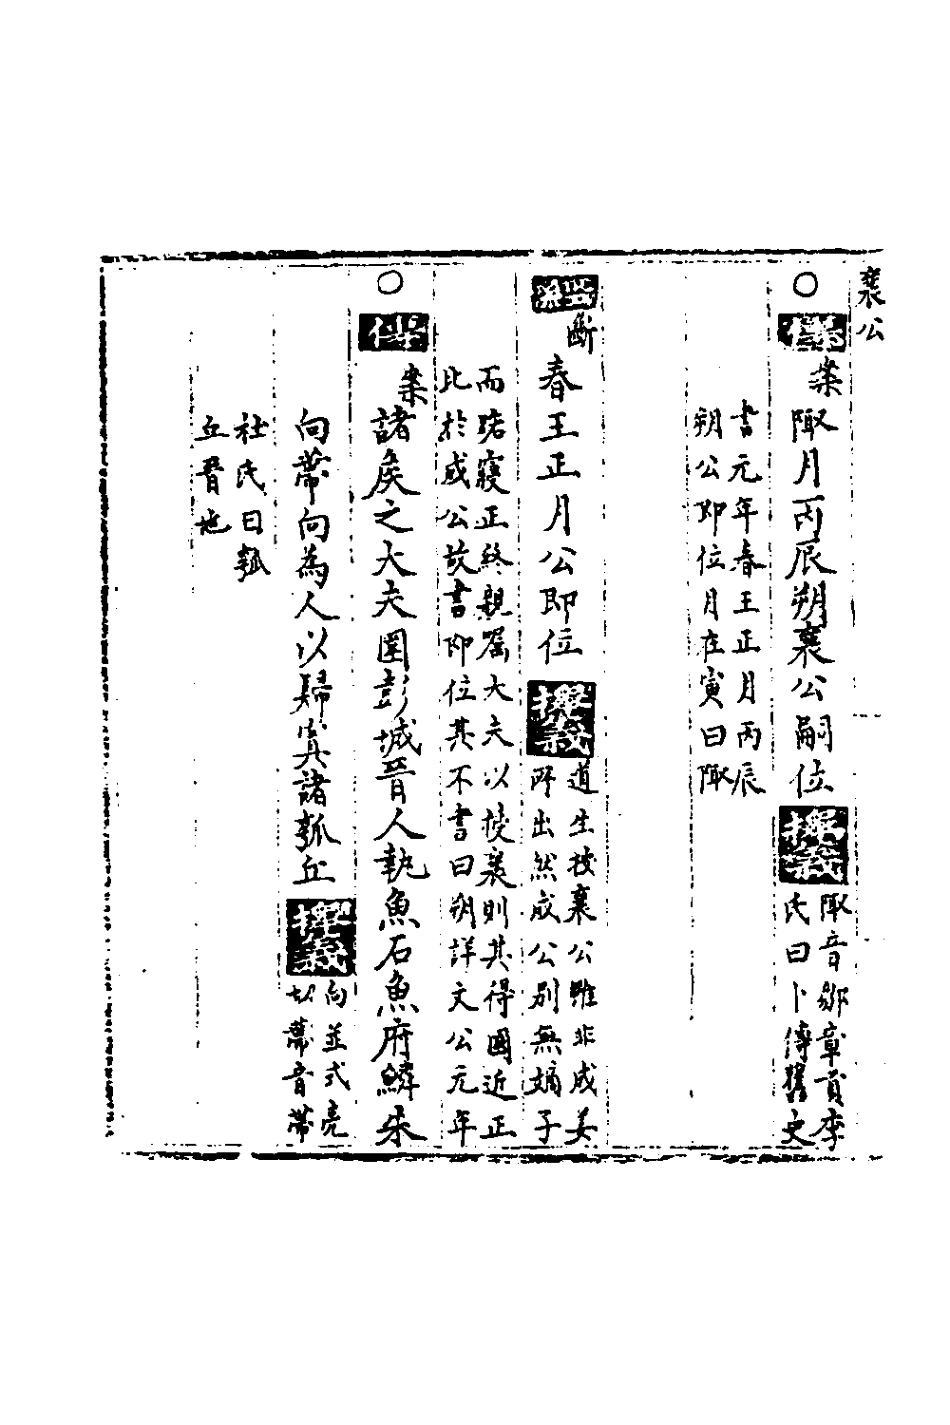 襄公
○傳案陬月丙辰朔襄公嗣位釋義陬音鄒章貢李
氏曰卜傳舊史
書元年春王正月丙辰
朔公即位月在寅曰陬
經斷春王正月公即位釋義道生按襄公雖非成姜
所出然成公別無嫡子
而踣寢正終親屬大夫以授襄則其得國近正
比於成公故書即位其不書曰朔詳文公元年
○傳案諸侯之大夫圍彭城晉人執魚石魚府鱗朱
向帶向為人以歸寘諸瓠丘釋義向並式亮
切帶音帶
杜氏曰瓠
丘晉地